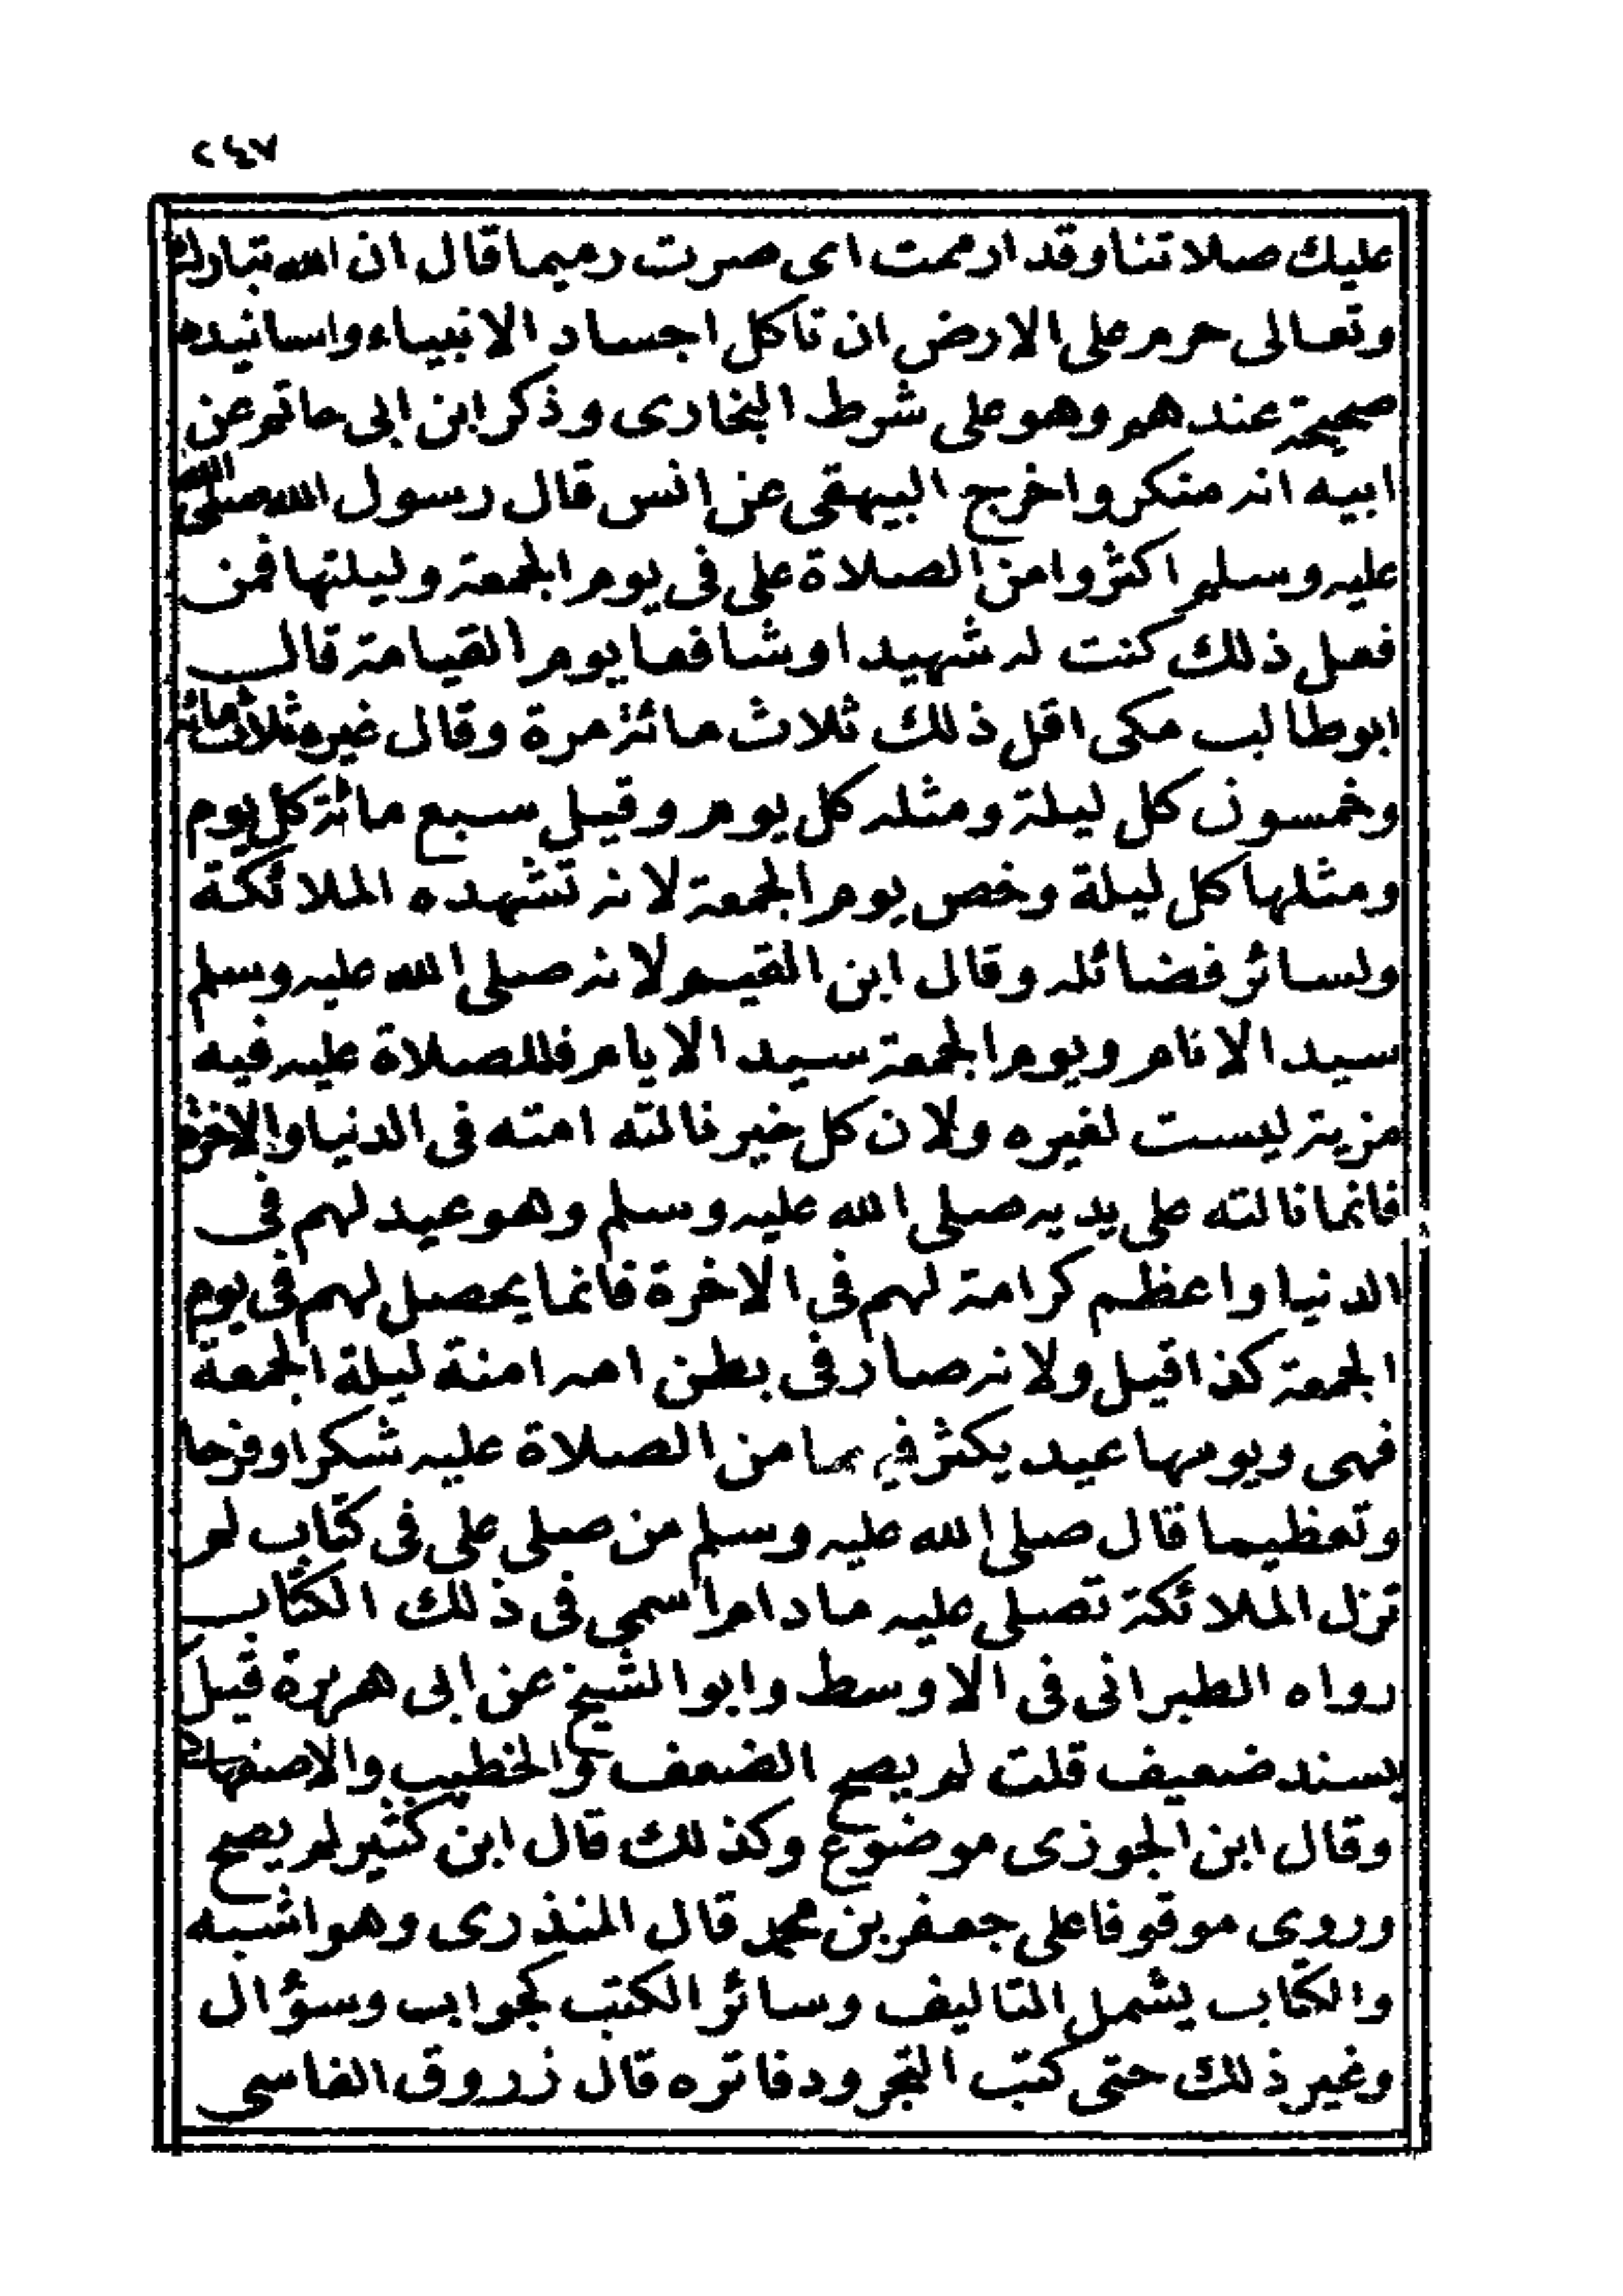 ٢٤٧
عليك صلاتنا وقد ارممت اى صرت رميما قال ان الله تبارك
وتعالى حرم على الارض ان تاكل اجساد الانبياء واسانيده
صحيحة عندهم وهو على شرط البخارى وذكر ابن ابى حاتم عن
ابيه انه منكر واخرج البيهقى عن انس قال رسول الله صلى الله
عليه وسلم اكثروا من الصلاة على فى يوم الجمعة وليلتها فمن
فعل ذلك كنت له شهيدا او شافعا يوم القيامة قال
ابو طالب مكى اقل ذلك ثلاث مائة مرة وقال غيره ثلاث مائة
وخمسون كل ليلة ومثله كل يوم وقيل سبع مائة كل يوم
ومثلها كل ليلة وخص يوم الجمعة لانه تشهده الملائكة
ولسائر فضائله وقال ابن القيم لانه صلى الله عليه وسلم
سيد الانام ويوم الجمعة سيد الايام فللصلاة عليه فيه
مزية ليست لغيره ولان كل خير نالته امته فى الدنيا والاخرة
فانما نالته على يديه صلى الله عليه وسلم وهو عيد لهم فى
الدنيا واعظم كرامة لهم فى الاخرة فانما يحصل لهم فى يوم
الجمعة كذا قيل ولانه صار فى بطن امه امنة ليلة الجمعة
فهى ويومها عيد يكثر فيهما من الصلاة عليه شكرا وفرحا
وتعظيما قال صلى الله عليه وسلم من صلى على فى كتاب لم
تزل الملائكة تصلى عليه مادام اسمى فى ذلك الكتاب
رواه الطبرانى فى الاوسط وابو الشيخ عن ابى هريرة قيل
بسند ضعيف قلت لم يصح الضعف والخطيب والاصفهانى
وقال ابن الجوزى موضوع وكذلك قال ابن كثير لم يصح
وروى موقوفا على جعفر بن محمد قال المنذرى وهو اشبه
والكتاب يشمل التاليف وسائر الكتب كجواب وسؤال
وغير ذلك حتى كتب التجر ودفاتره قال زروق الفاسى